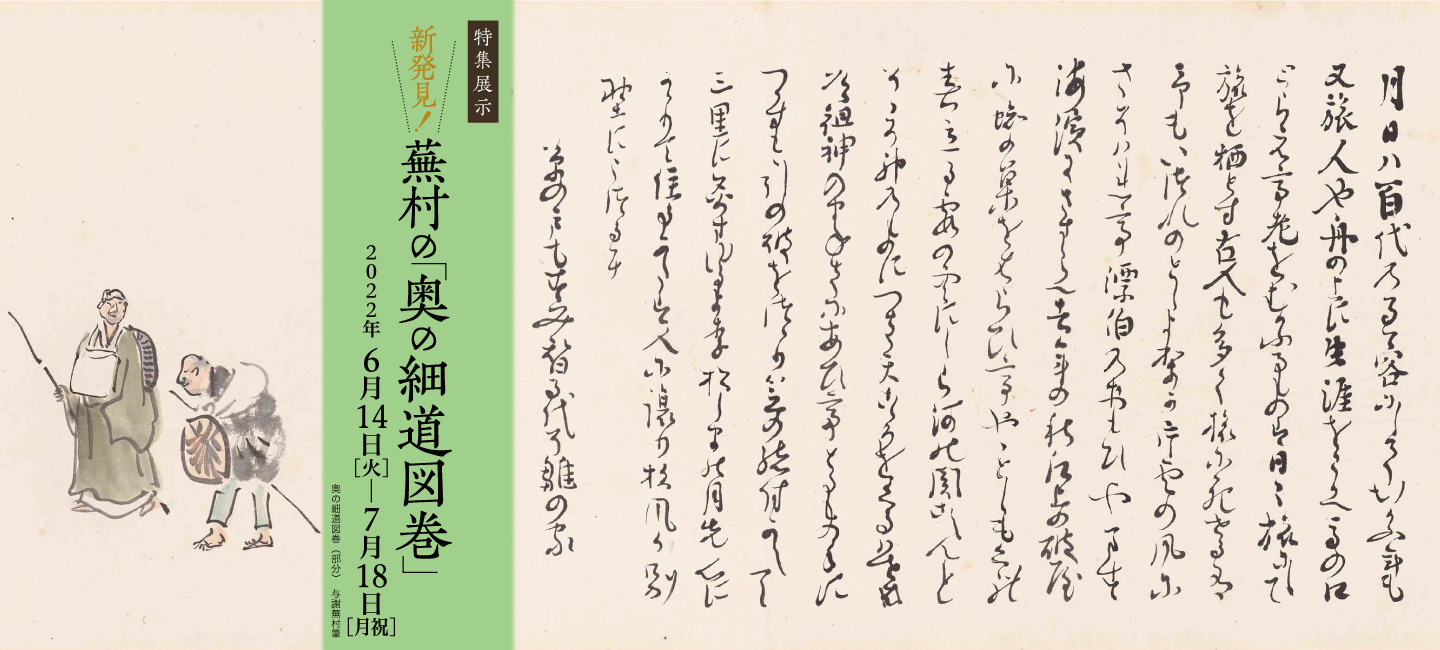 月日ハ百代乃過客にして行かふ年も
又旅人や舟の上に生涯をうかへ馬の口
とらえて老をむかふるものは日々旅にして
旅を栖とす古人も多く旅に死せるあり
予もいつれのとしよりか片雲の風に
さそハれて漂泊のおもひやます
海浜にさすらへ去年の秋江上の破屋
に蜘の古巣をはらひてやゝとしも暮
春立る霞の空にしら河の関こえんと
そゝろ神のものにつきて心をくるはせ
道祖神のまねきにあひてとるもの手に
つかすもゝ引の破をつゝり笠の緒付かえて
三里に灸すゆるより松しまの月先心に
かゝりて住る方は人に譲り杉風か別
墅にうつるに
草の戸も住替る代そ雛の家
特集展示
新発見!
蕪村の「奥の細道図巻」
2022年6月14日[火]―7月18日[月祝]
奥の細道図巻(部分) 与謝蕪村筆